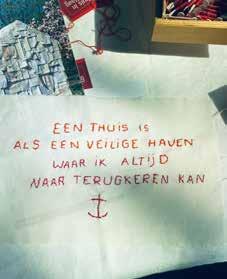 EEN THUIS IS
ALS EEN VEILIGE HAVEN
WAAR IK ALTIJD
NAAR TERUGKEREN KAN